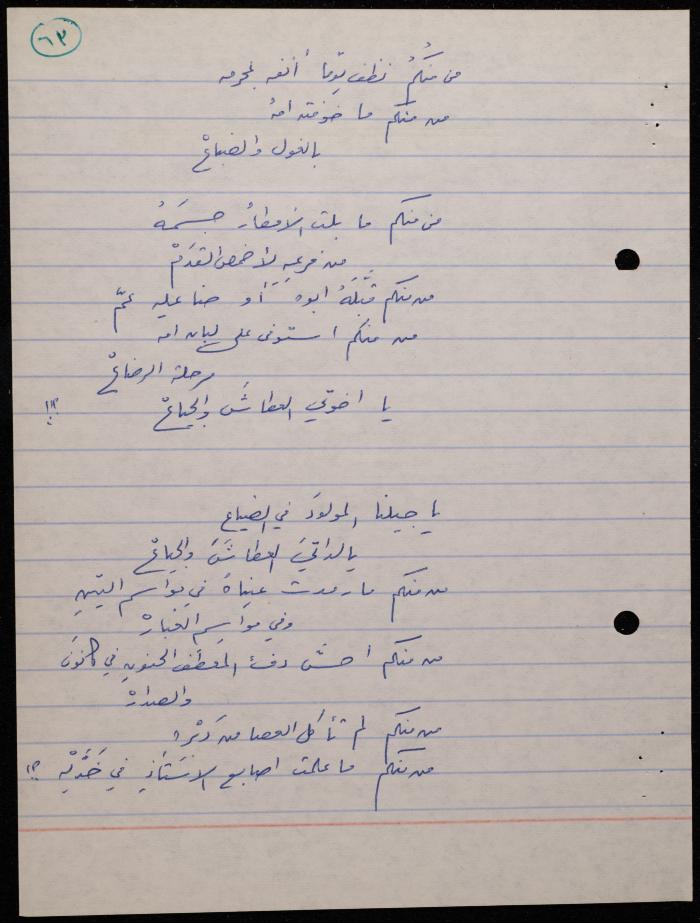 ٦٣
من منكُمُ نظف يومًا أنفه بمحرمه
من منكم ما خوفته امهُ
بالغول والضباعْ
من منكم ما بلت الأمطارُ جسمَهُ
من فرعهِ لأخمص القدَمْ
من منكم قبَّلَهُ ابوه أو حنا عليه عمّ
من منكم استوفى على لبان امه
مرحلة الرضاعْ
يا اخوتي العطاشَ والجياعْ !!؟
يا جيلنا المولودَ في الضياع
يا لداتيَ العطاشَ والجياعْ
من منكم ما رمدت عيناهُ في مواسم التينِ
وفي مواسم الغبارْ
من منكم أحسَّ دفءَ المعطف الحنونِ في كانونَ
من منكم لم تأكل العصا من
من منكم ما علمت اصابع الاستاذِ في خدَّيْهِ ؟!